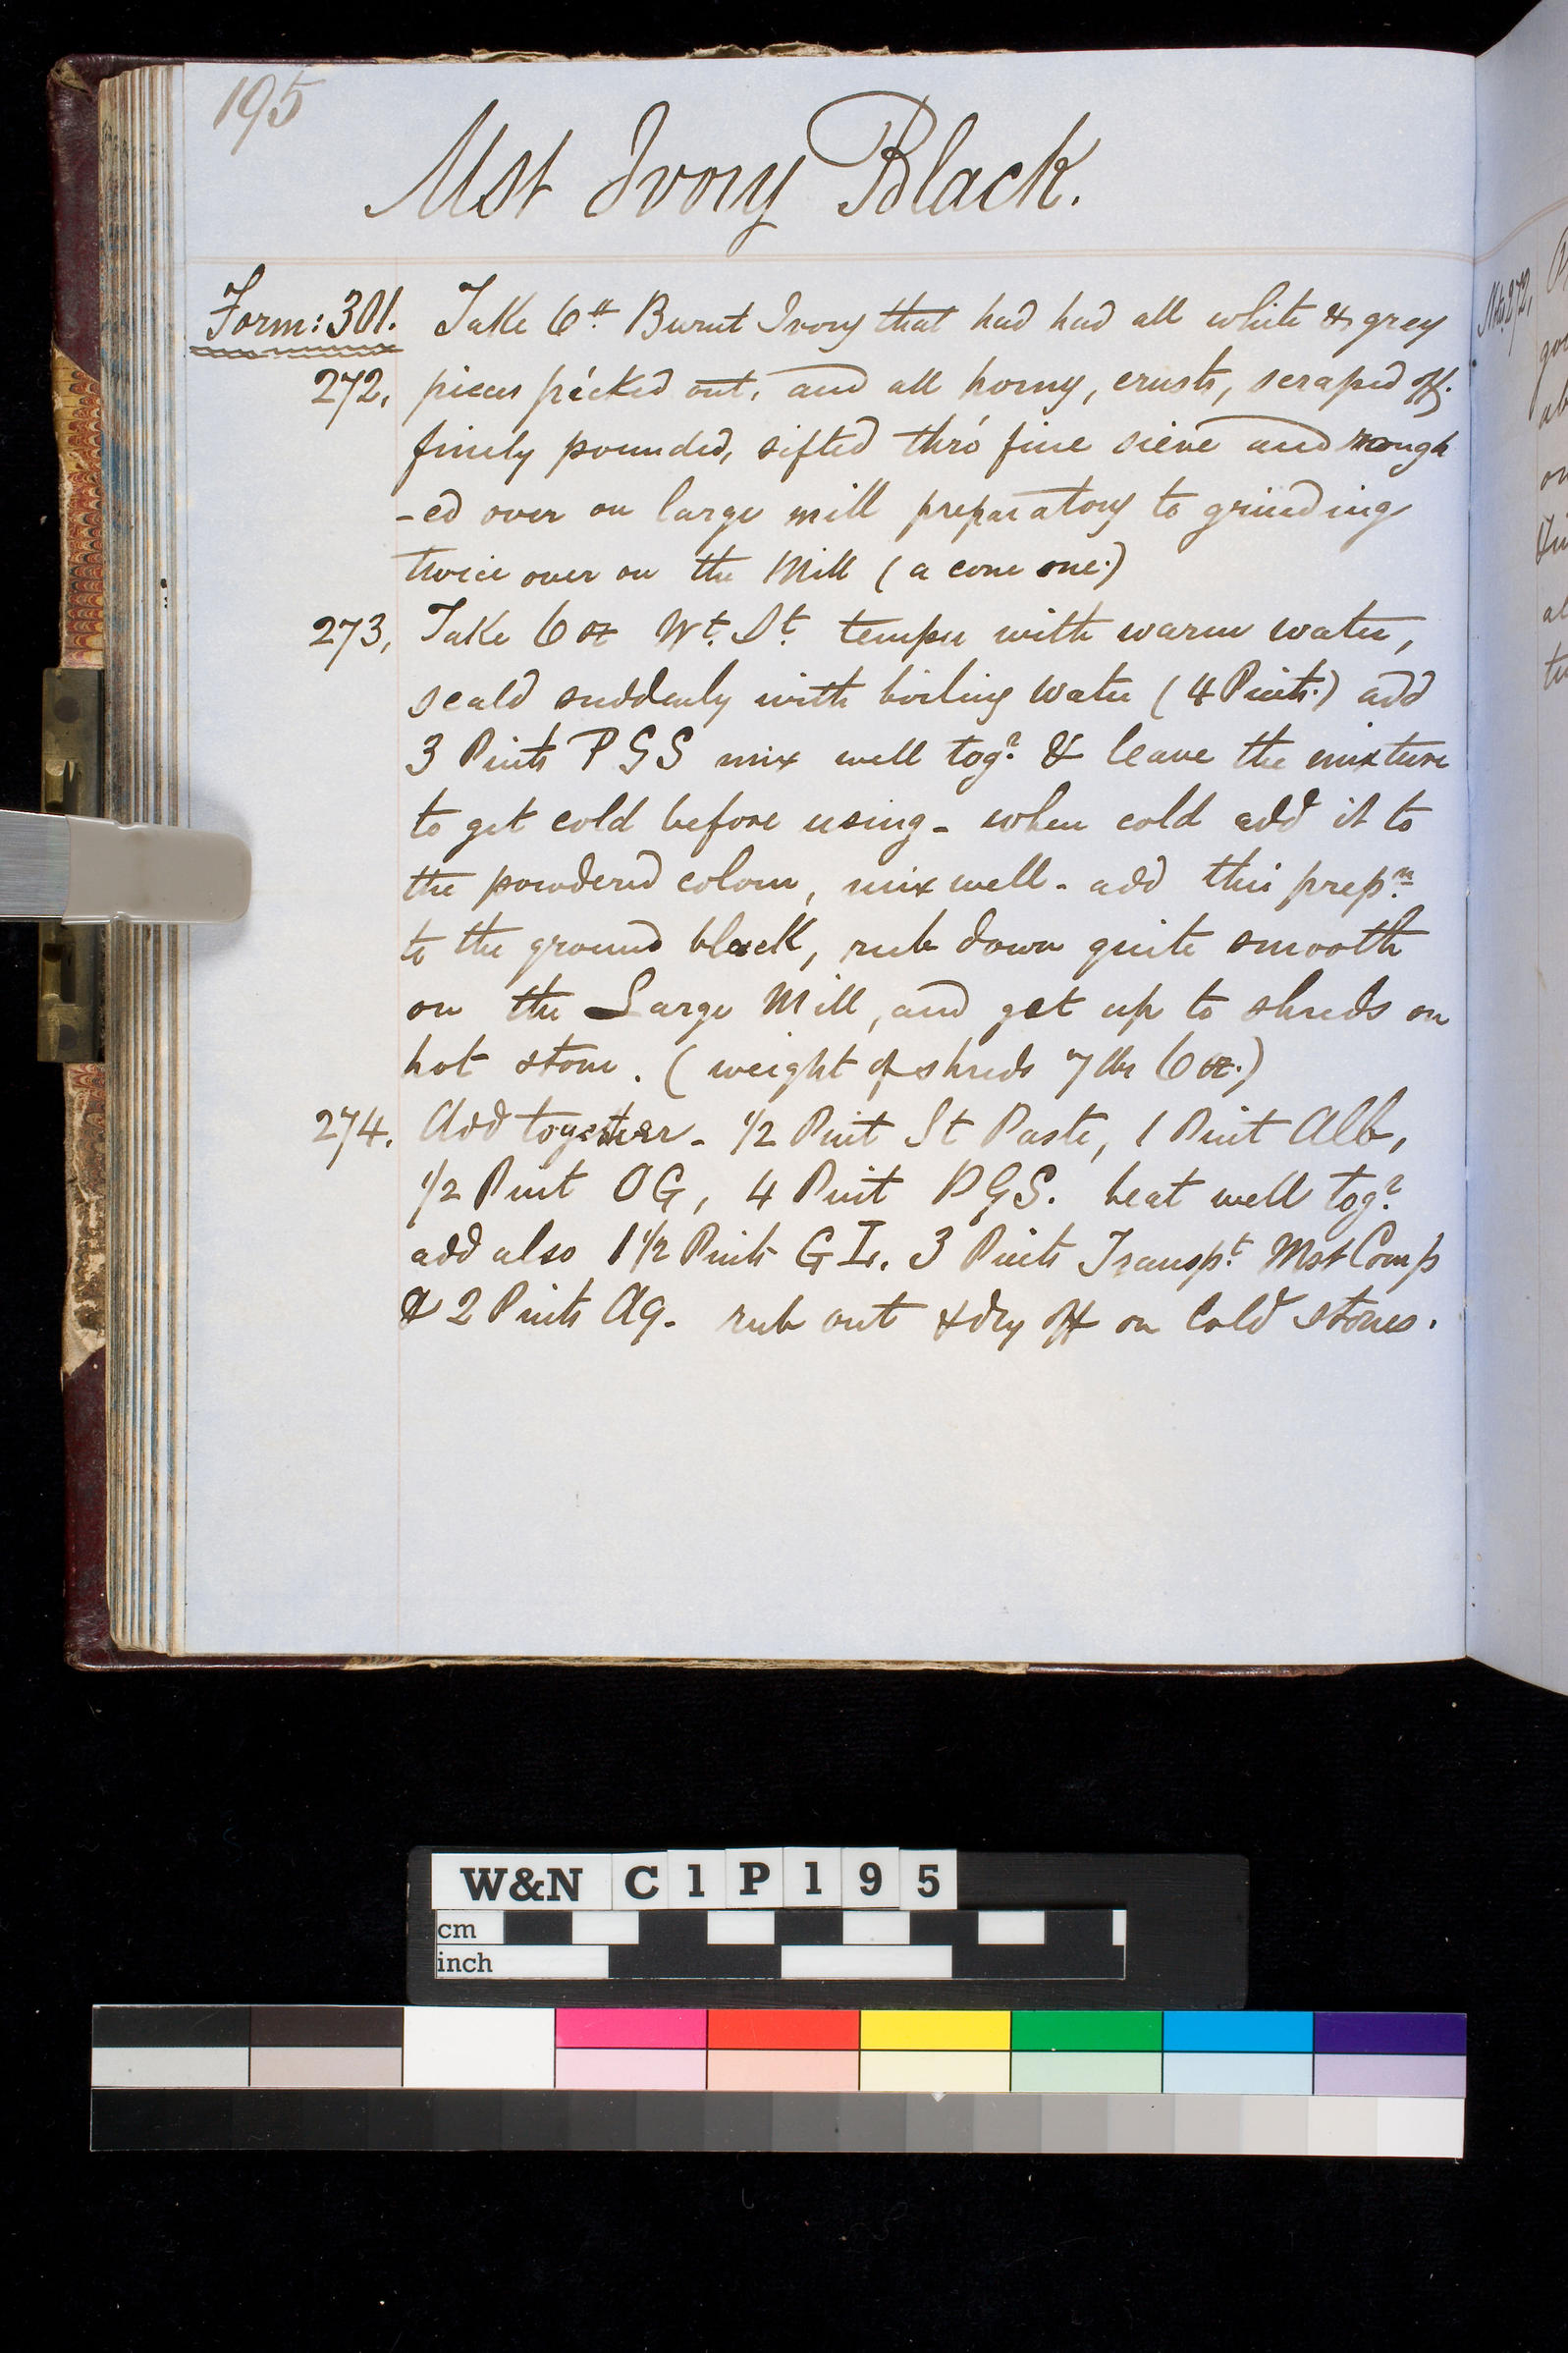 195
Mst Ivory Black.
Form: 301. Take 6 lb Burnt Ivory that had had all white & grey
272, pieces picked out, and all horny, crusts, scraped off.
finely pounded, sifted thro' fine sieve and rough
-ed over on large mill preparatory to grinding
twice over on the Mill (a cone one.)
273, Take 6 oz Wt. St. temper with warm water,
scald suddenly with boiling water (4 Pints.) add
3 Pints PGS mix well togr. & leave the mixture
to get cold before using - when cold add it to
the powdered colour, mix well - add this prepn.
to the ground black, rub down quite smooth
on the Large Mill, and get up to shreds on
hot stone. (weight of shreds 7 lbs 6 oz.)
274. Add together - 1/2 Pint St Paste, 1 Pint Alb,
1/2 Pint OG, 4 Pint PGS. heat well togr.
add also 1 1/2 Pints GL. 3 Pints Transpt. Mst Comp
& 2 Pints Aq. rub out & dry off on Cold stones.
W&N C1P195
cm
inch